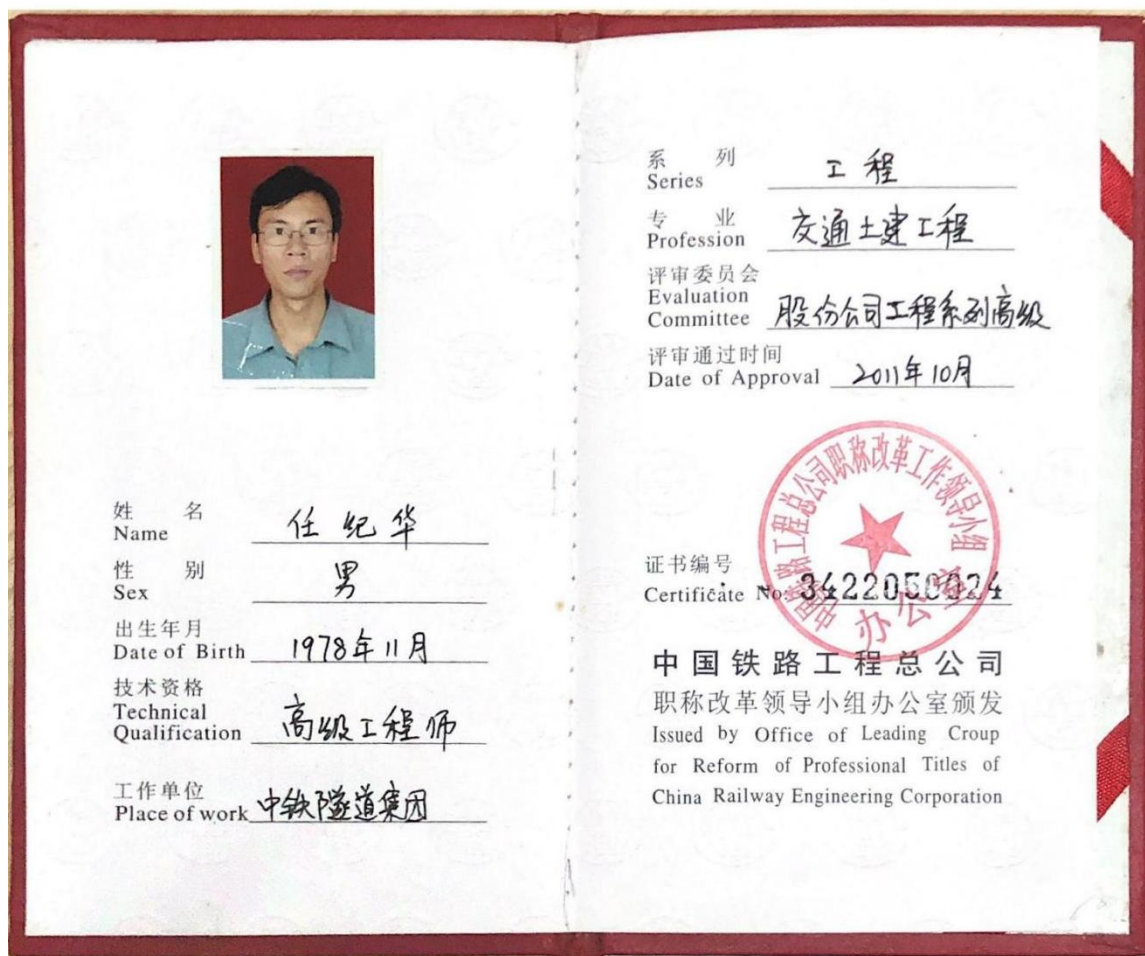 姓 名 任纪华
Name
性 别 男
Sex
出生年月
Date of Birth 1978年11月
技术资格
Technical
Qualification 高级工程师
工作单位
Place of work 中铁隧道集团
系 列 工程
Series
专 业 交通土建工程
Profession
评审委员会
Evaluation
Committee 股份公司工程系列高级
评审通过时间
Date of Approval 2011年10月
中国铁路工程总公司职称改革工作领导小组
办公室
证书编号
Certificate No: 3422050024
中国铁路工程总公司
职称改革领导小组办公室颁发
Issued by Office of Leading Croup
for Reform of Professional Titles of
China Railway Engineering Corporation